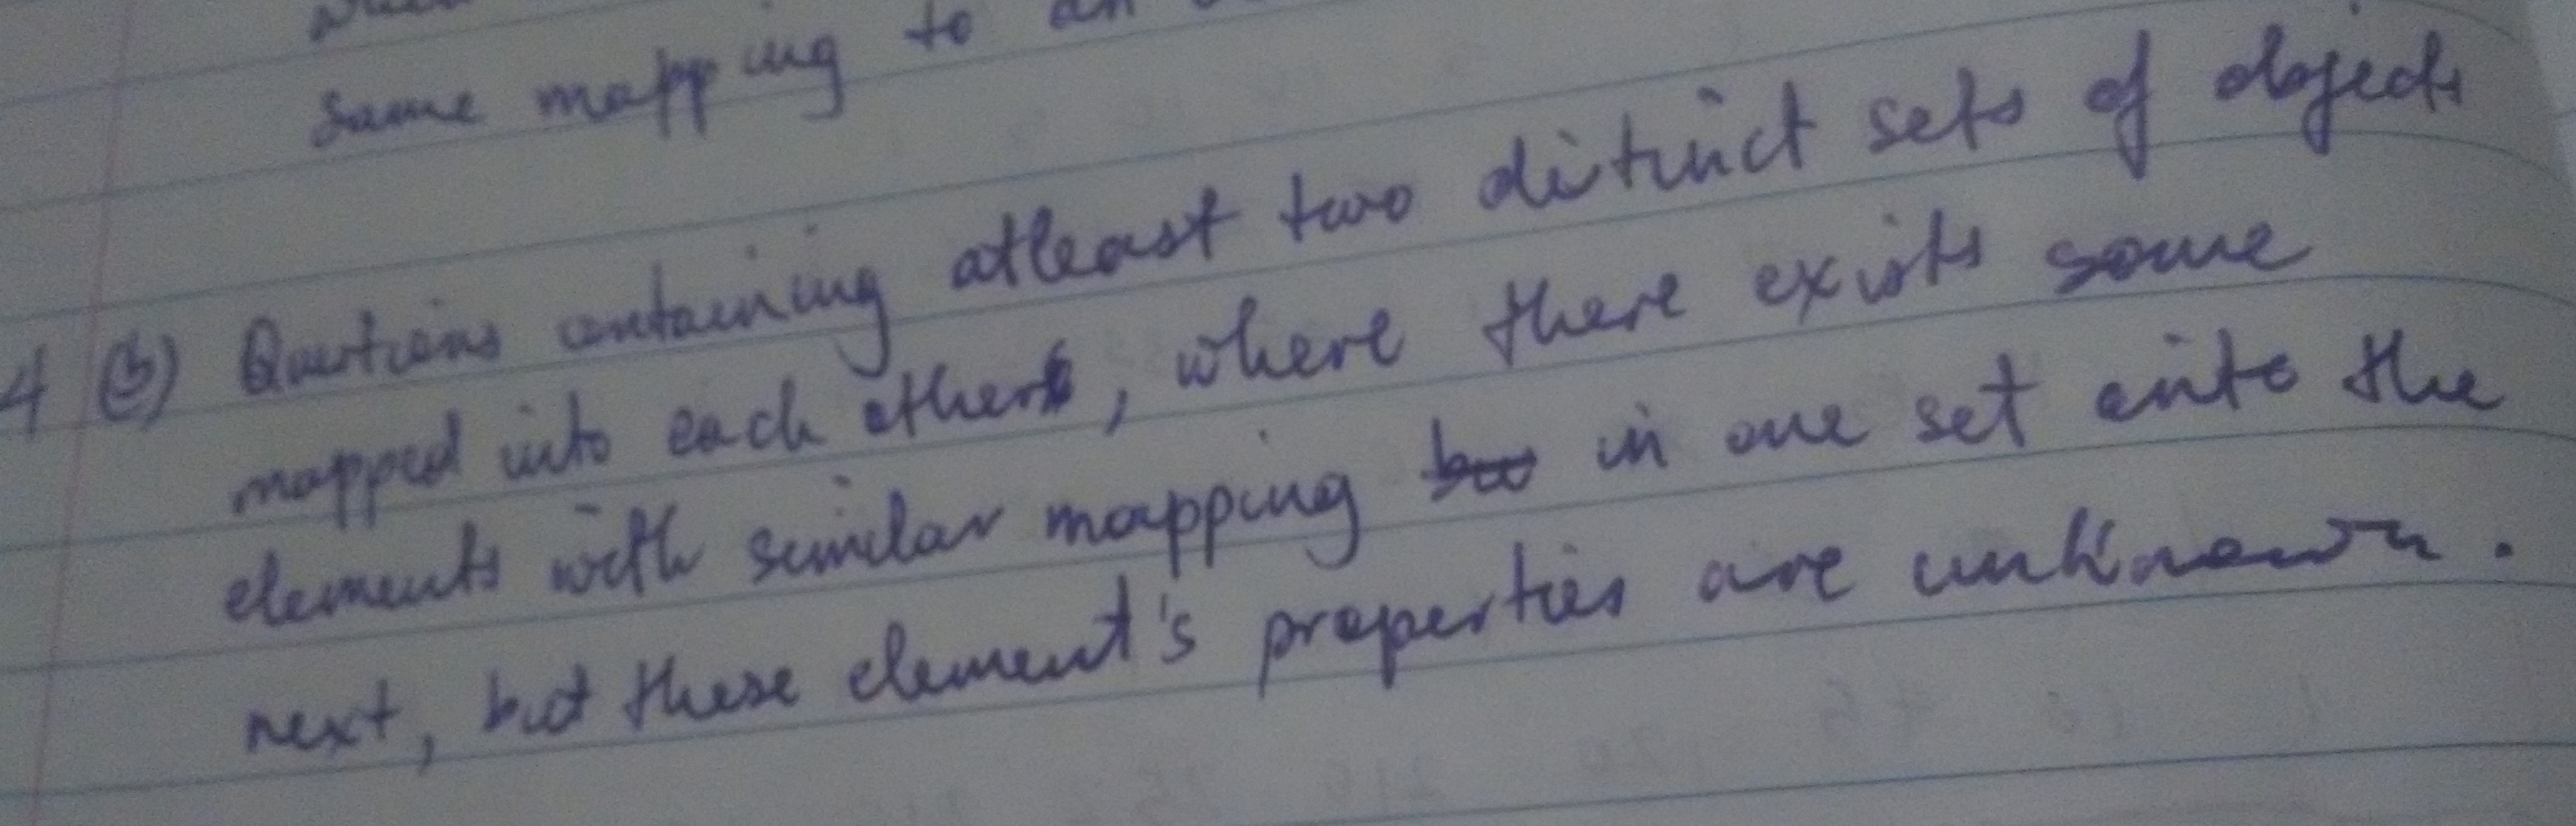 same mapping to an
4 (b) Questions containing atleast two distinct sets of objects
mapped into each other, where there exists some
elements with similar mapping in one set onto the
next, but these element's properties are unknown.